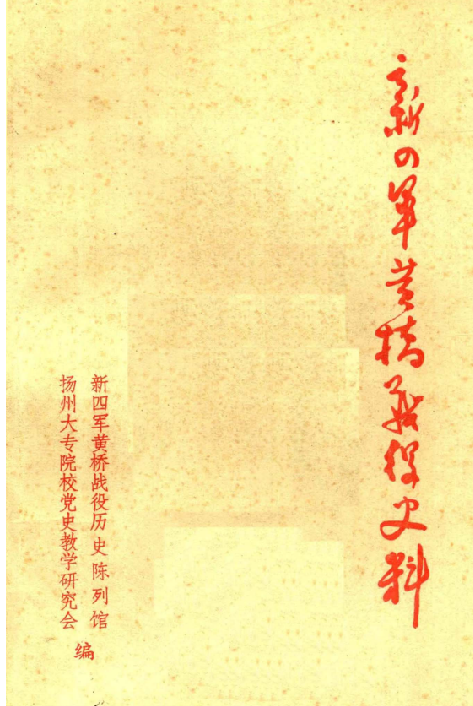 新四军黄桥战役史料
新四军黄桥战役历史陈列馆
扬州大专院校党史教学研究会
编